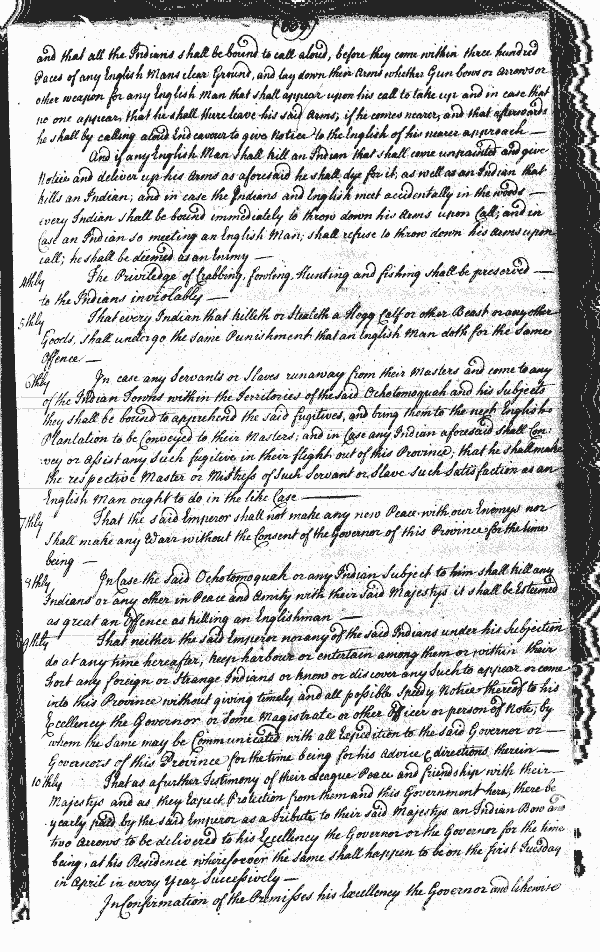 and that all the Indians shall be bound to call aloud, before they come within three hundred
Paces of any English Mans clear Ground, and lay down their Arms whether Gun bows or Arrows or
other weapon for any English Man that shall appear upon his call to take up and in case that
no one appear, that he shall there leave his said Arms, if he comes nearer, and that afterwards
he shall by calling aloud Endeavour to give notice to the English of his nearer approach —
And if any English Man shall kill an Indian that shall come unpainted and give
Notice and deliver up his Arms as aforesaid he shall dye for it, as well as an Indian that
kills an Indian; and in case the Indians and English meet accidentally in the woods —
every Indian shall be bound immediately to throw down his Arms upon Call; and in
Case an Indian so meeting an English Man; shall refuse to throw down his Arms upon
call; he shall be deemed as an Enimy —
4thly The Priviledge of Crabbing, fowleng, Hunting and fishing shall be preserved —
to the Indians inviolably —
5thly That every Indian that killeth or stealeth a Hogg Calf or other Beast or any other
Goods, shall undergo the same Punishment that an English Man doth for the Same
Offence —
6thly In case any Servants or Slaves runaway from their Masters and come to any
of the Indian Towns within the Territories of the said Ochotomoquah and his Subjects
they shall be bound to apprehend the said fugitives, and bring them to the next English
Plantation to be Conveyed to their Masters; and in Case any Indian aforesaid shall Con:
vey or Assist any such fugitive in their flight out of this Province, that he shall make
the respective Master or Mistress of such Servant or Slave such Satisfaction as an
English Man ought to do in the like Case —
7thly That the said Emperor shall not make any new Peace with our Enemys nor
shall make any Warr without the Consent of the Governor of this Province for the time
being —
8thly In Case the said Ochotomoquah or any Indian Subject to him shall kill any
Indians or any other in Peace and Amity with their said Majestys it shall be Esteemed
as great an Offence as killing an Englishman
9thly That neither the said Emperor nor any of the said Indians under his Subjection
do at any time hereafter, keep harbour or entertain among them or within their
Fort any foreign or Strange Indians or know or discover any such to appear or come
into this Province without giving timely and all possible Speedy Notice thereof to his
Excellency the Governor or some Magistrate or other Officer or person of Note, by
whom the Same may be Communicated with all Expedition to the said Governor or —
Governors of this Province for the time being for his Advice & directions therein —
10thly That as a further Testimony of their League Peace and friendship with their —
Majestys and as they Expect Protection from them and this Government here, there be
yearly paid by the said Emperor as a Tribute to their said Majestys an Indian Bow and
two Arrows to be delivered to his Excellency the Governor or the Governor for the time
being, at his Residence wheresoever the same shall happen to be on the first Tuesday
in April in every Year Successively —
In Confirmation of the Premisses his Excellency the Governor and likewise